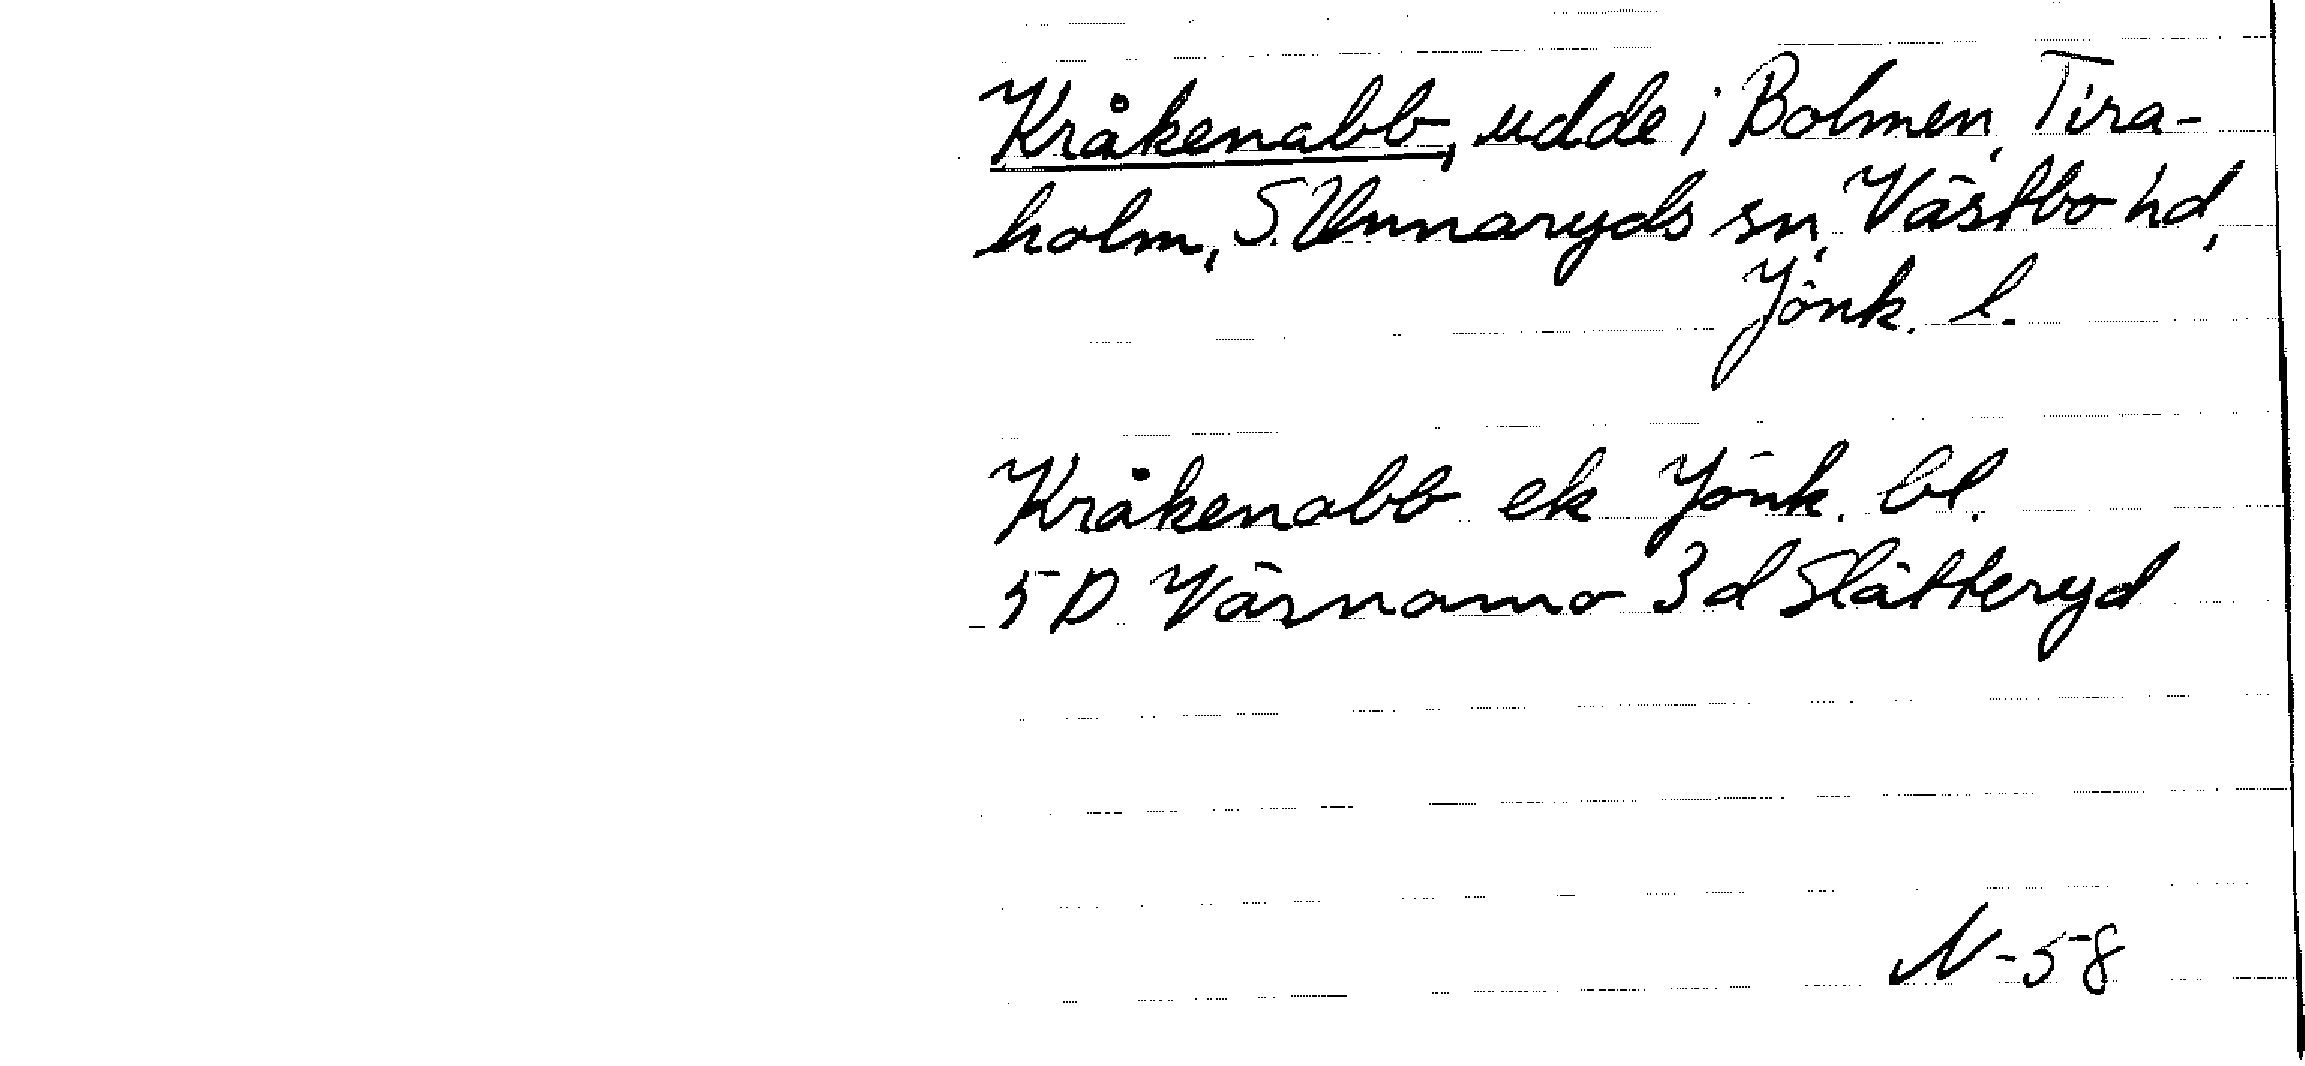 Kråkenabb, udde i Bolmen, Tira-
holm, S. Unnaryds sn, Västbo hd,
Jönk. l.
Kråkenabb ek Jönk. bl.
5 D Värnamo 3 d Slätteryd
N-58